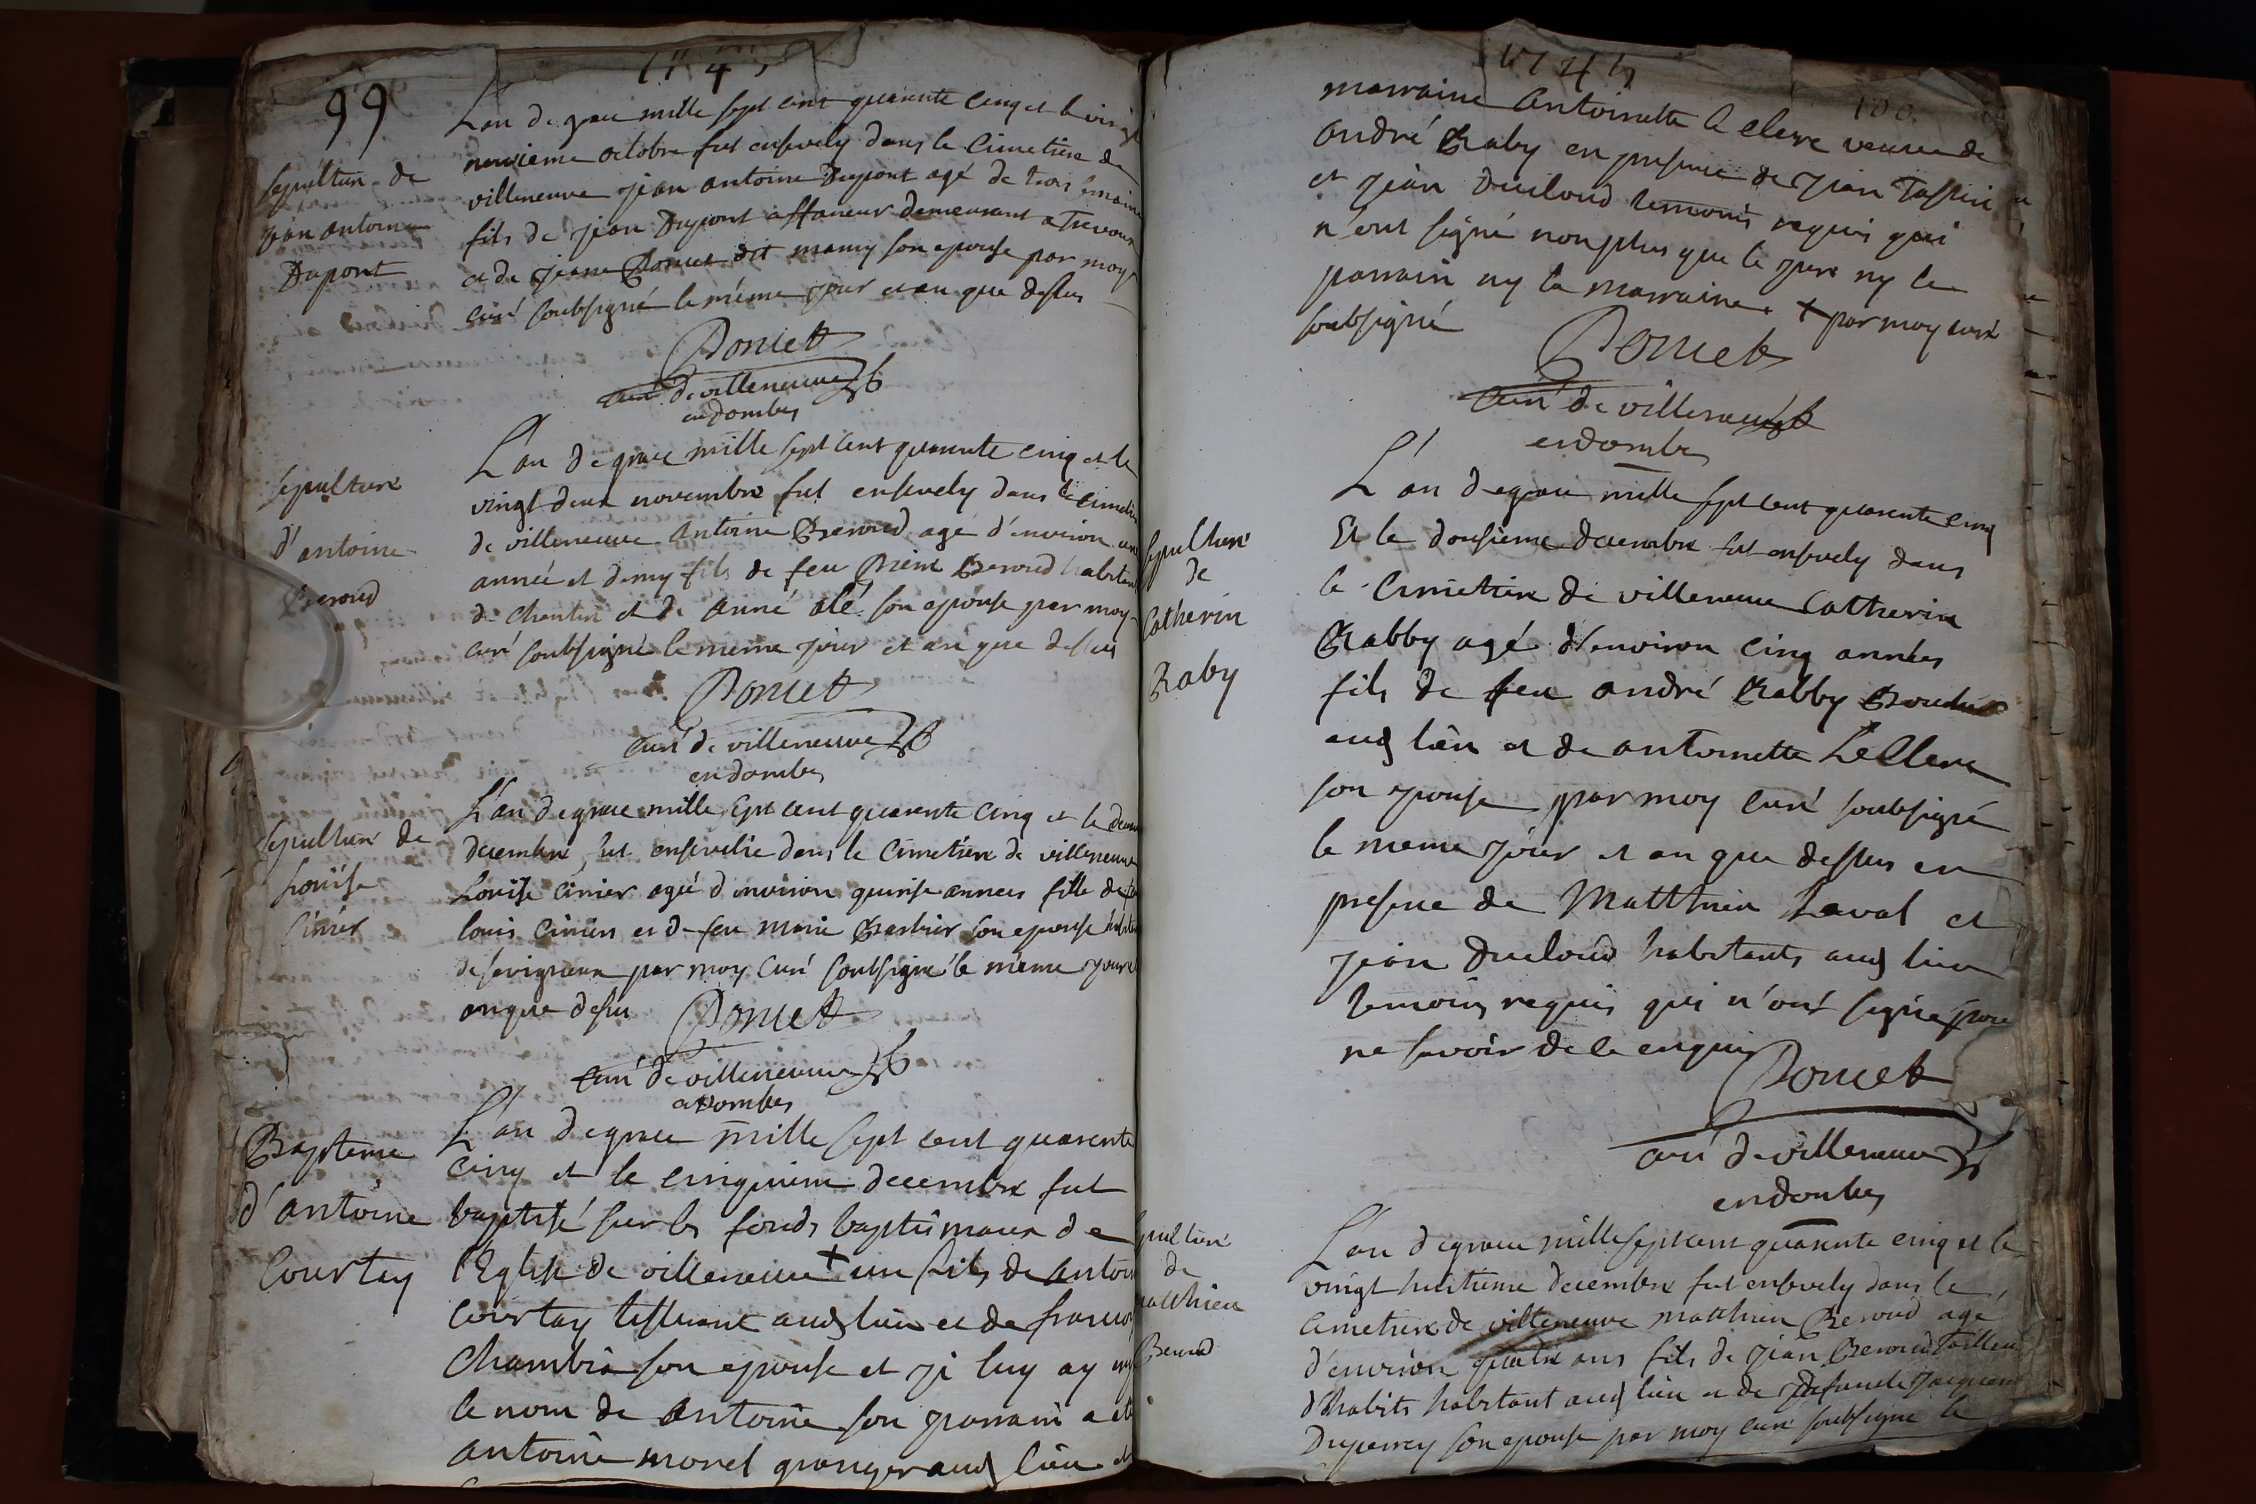 1745
99
L'an de grace mille sept cent quarente cinq et le vingt
neuvieme octobre fut ensevely dans le Cimetiere de
villeneuve jean antoine Dupont agé de trois semaines
fils de jean Dupont affaneur demeurant a Trevoux
et de jeane Poncet dit mamy son epouse par moy
curé soubsigné le même jour et an que dessus
Sepulture de
jean antoine
Dupont
Poncet
curé de villeneuve
en dombes
L'an de grace mille sept cent quarente cinq et le
vingt deux novembre fut ensevely dans le cimetiere
de villeneuve Antoine Beroud agé d'environ une
année et demy fils de feu Pierre Beroud habitant
de Chantin et de Anne alé son epouse par moy
curé soubsigné le même jour et an que dessus
Sepulture
d'antoine
Beroud
Poncet
curé de villeneuve
en dombes
L'an de grace mille sept cent quarente cinq et le
decembre fut ensevelie dans le Cimetiere de villeneuve
Louise Cinier agée d'environ quinse annees fille de feu
louis Cinier et de feu Marie Barbier son epouse
de savigneux par moy Curé soubsigné le même jour et
an que dessus
Sepulture de
Louise
Cinier
Poncet
curé de villeneuve
en Dombes
L'an de grace mille sept cent quarente
cinq et le cinquieme decembre fut
baptisé sur les fonds baptismaux de
l'Eglise de villeneuve + un fils de Antoine
Courtay tisserant aud lieu et de
Chambre son epouse et je luy ay mis
le nom de Antoine son parrain a eté
Antoine morel granger aud lieu et
Bapteme
d'antoine
Courtay
1745
100
marraine Antoinette le clerc veuve de
André Raby en presence de jean Tassin
et jean Ducloud temoins requis qui
n'ont signé non plus que le pere ny le
parrain ny la marraine. + par moy curé
soubsigné
Poncet
curé de villeneuve
en dombes
L'an de grace mille sept cent quarente cinq
Et le dousieme decembre fut ensevely dans
le Cimetiere de villeneuve Catherin
Rabby agé d'environ cinq années
fils de feu andré Rabby
aud lieu et de antoinette Leclerc
son epouse par moy curé soubsigné
le meme jour et an que dessus en
presence de Matthieu Laval et
jean Ducloud habitants aud lieu
temoins requis qui n'ont signé pour
ne savoir de ce enquis
Sepulture
de
Catherin
Raby
Poncet
curé de villeneuve
en dombes
L'an de grace mille sept cent quarente cinq et le
vingt huitieme decembre fut ensevely dans le
Cimetiere de villeneuve matthieu Beroud agé
d'environ quatre ans fils de jean Beroud tailleur
d'habits habitant aud lieu et de defuncte
Duperrey son epouse par moy curé soubsigné le
Sepulture
de
matthieu
Beroud